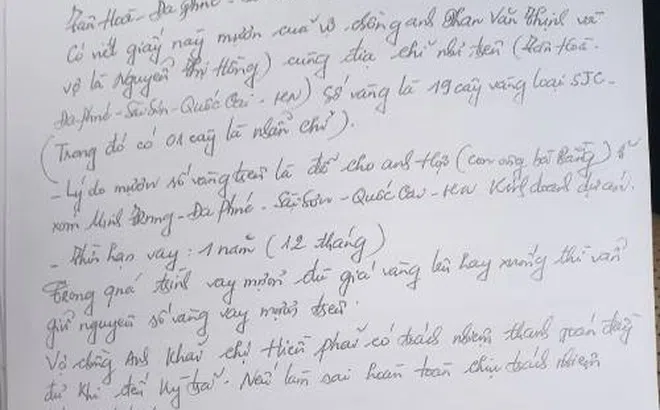 Tân Hoà - Đa Phúc -
Có viết giấy này mượn của vợ chồng anh Phan Văn Thịnh và
vợ là Nguyễn Thị Hồng) cùng địa chỉ như trên (Tân Hoà -
Đa Phúc - Sài Sơn - Quốc Oai - HN) Số vàng là 19 cây vàng loại SJC -
(Trong đó có 01 cây là nhẫn chỉ).
- Lý do mượn số vàng trên là để cho anh Hợp (con ông bà Bằng) ở
xóm Minh - Đa Phúc - Sài Sơn - Quốc Oai - HN Kinh doanh dự án.
- Thời hạn vay: 1 năm (12 tháng)
Trong quá trình vay mượn dù giá vàng lên hay xuống thì vẫn
giữ nguyên số vàng vay mượn trên.
Vợ chồng Anh Khải chị Hiền phải có trách nhiệm thanh toán đầy
đủ khi đến kỳ trả. Nếu làm sai hoàn toàn chịu trách nhiệm